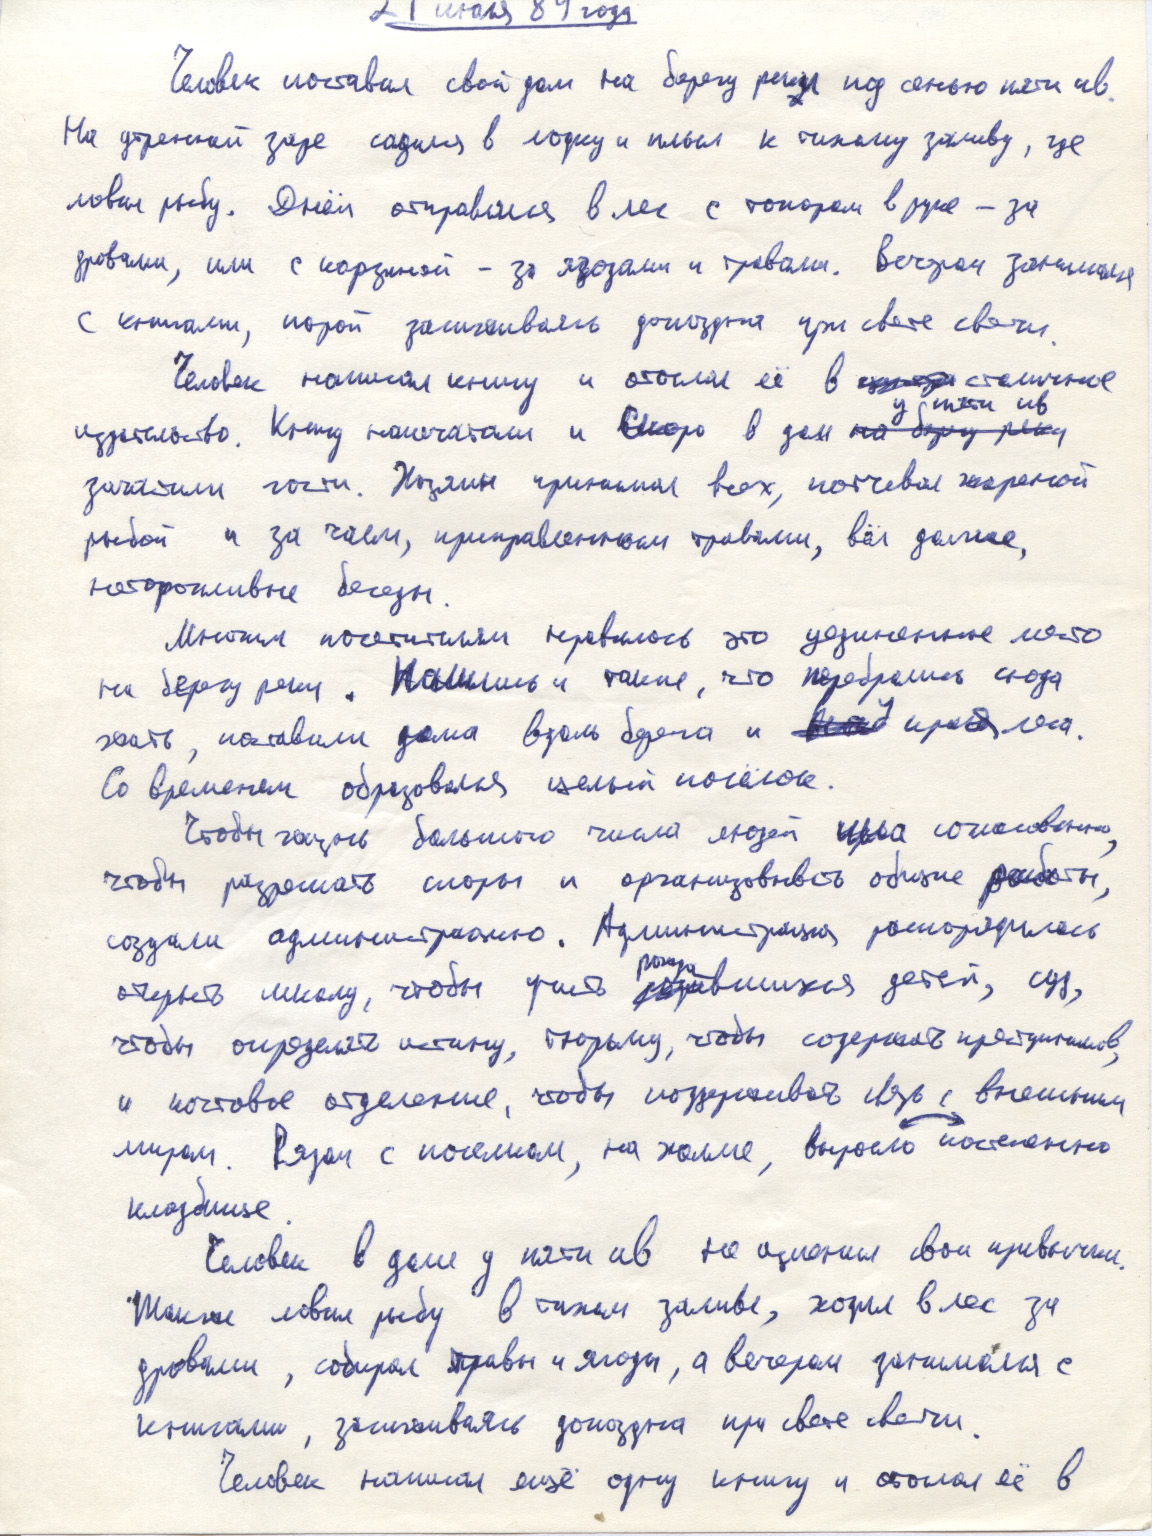 21 июля 89 года
Человек поставил свой дом на берегу реки под сенью пяти ив.
На утренней заре садился в лодку и плыл к тихому заливу, где
ловил рыбу. Днём отправлялся в лес с топором в руке – за
дровами, или с корзиной – за ягодами и травами. Вечером занимался
с книгами, порой засиживаясь допоздна при свете свечи.
Человек написал книгу и отослал её в столичное
издательство. Книгу напечатали и скоро в дом у пяти ив на берегу реки
зачастили гости. Хозяин принимал всех, потчевал жареной
рыбой и за чаем, приправленным травами, вёл долгие,
неторопливые беседы.
Многим посетителям нравилось это уединенное место
на берегу реки. Нашлись и такие, что перебрались сюда
жить, поставили дома вдоль берега и у края леса.
Со временем образовался целый посёлок.
Чтобы жизнь большого числа людей шла согласованно,
чтобы разрешать споры и организовывать общие работы,
создали администрацию. Администрация распорядилась
открыть школу, чтобы учить рождавшихся детей, суд,
чтобы определять истину, тюрьму, чтобы содержать преступников,
и почтовое отделение, чтобы поддерживать связь с внешним
миром. Рядом с поселком, на холме, выросло постепенно
кладбище.
Человек в доме у пяти ив не изменил свои привычки.
Также ловил рыбу в тихом заливе, ходил в лес за
дровами, собирал травы и ягоды, а вечерам занимался с
книгами, засиживаясь допоздна при свете свечи.
Человек написал ещё одну книгу и отослал её в